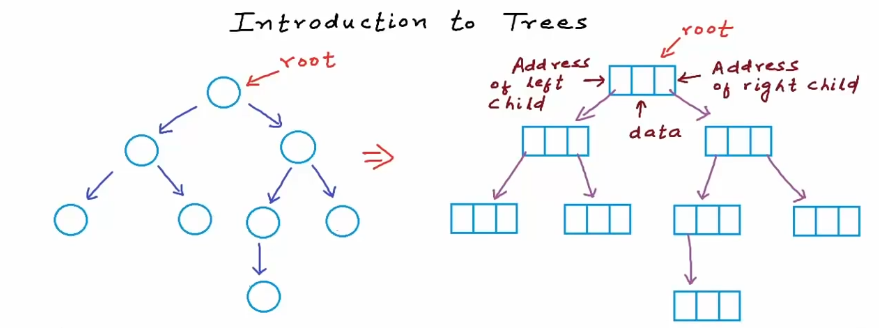 Introduction to Trees
root
root
Address
of left
child
Address
of right child
data